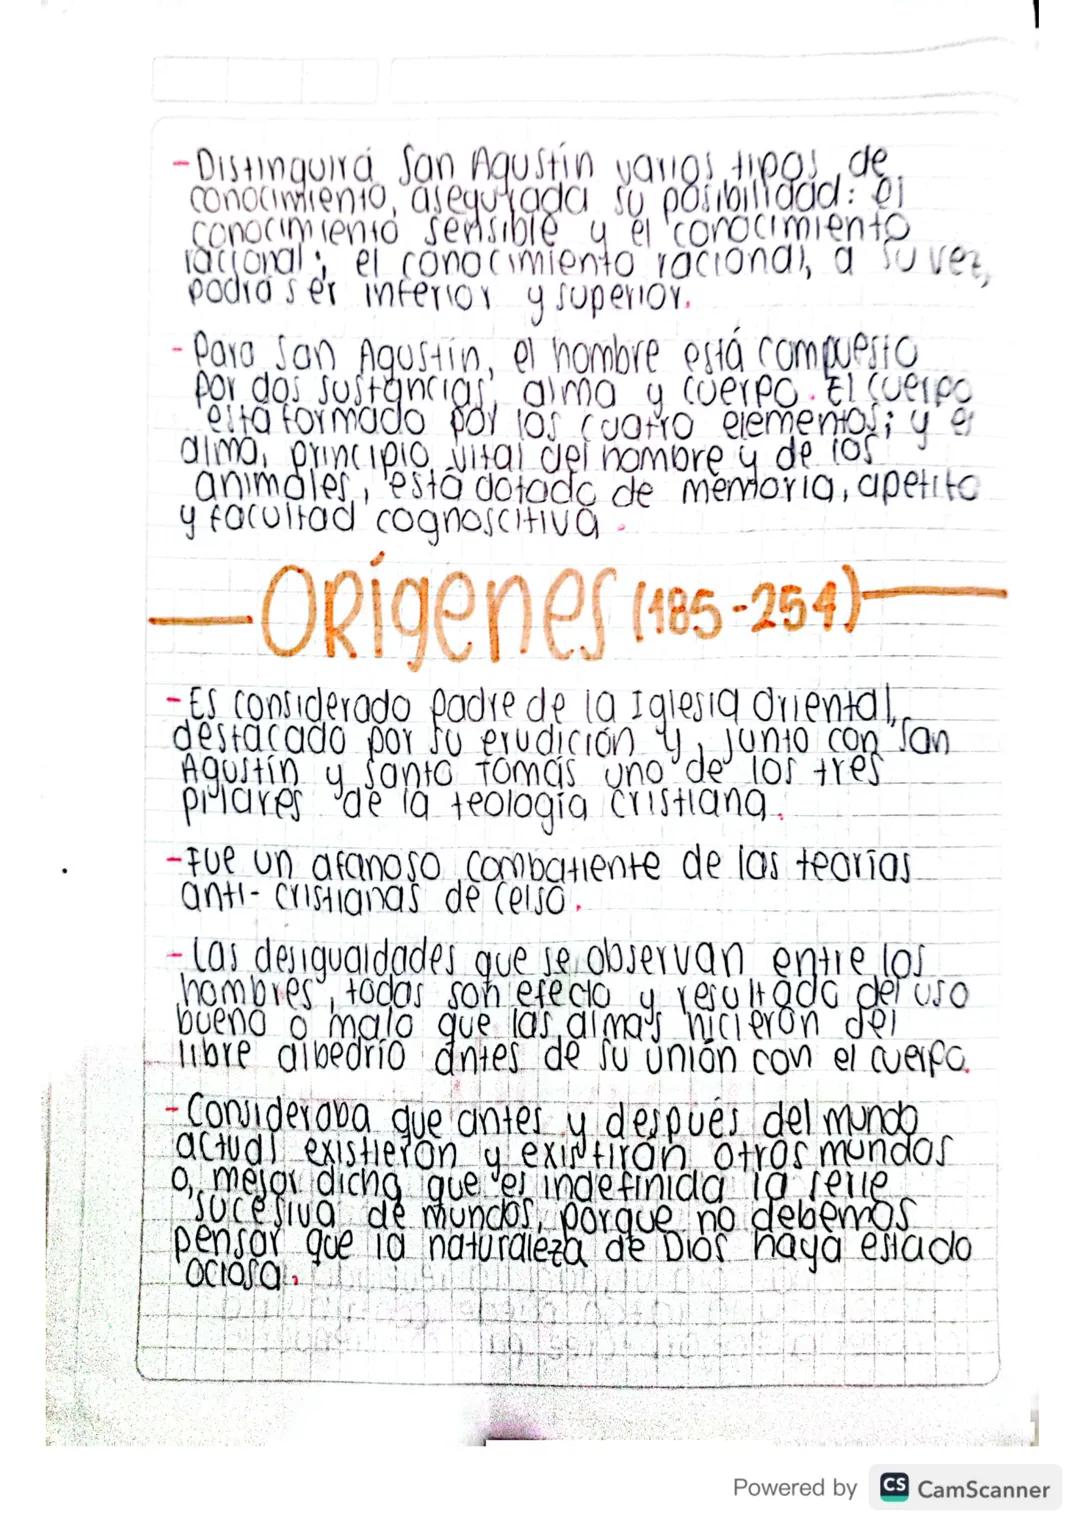 - Distinguirá San Agustín varios tipos de
conocimiento, asegurada su posibilidad: el
conocimiento sensible y el conocimiento
racional; el conocimiento racional, a su vez,
podrá ser inferior y superior.
- Para San Agustín, el hombre está compuesto
por dos sustancias, alma y cuerpo. El cuerpo
está formado por los cuatro elementos; y el
alma, principio vital del hombre y de los
animales, está dotado de memoria, apetito
y facultad cognoscitiva.
Orígenes (185-254)
- Es considerado Padre de la Iglesia Oriental,
destacado por su erudición y, junto con San
Agustín y Santo Tomás uno de los tres
pilares de la teología cristiana.
- Fue un afanoso combatiente de las teorías
anti-cristianas de Celso.
- Las desigualdades que se observan entre los
hombres, todas son efecto y resultado del uso
bueno o malo que las almas hicieron del
libre albedrío antes de su unión con el cuerpo.
- Consideraba que antes y después del mundo
actual existieron y existirán otros mundos
o, mejor dicho, que es indefinida la serie
sucesiva de mundos, porque no debemos
pensar que la naturaleza de Dios haya estado
ociosa.
Powered by CS CamScanner